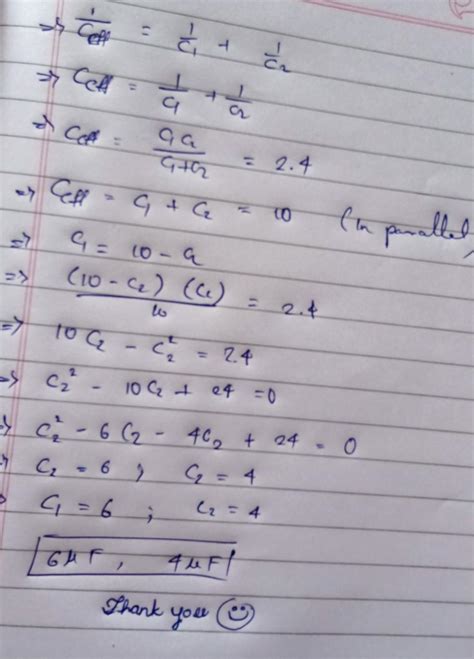 ⇒ 1/Ceff = 1/C₁ + 1/C₂
⇒ Ceff = 1/C₁ + 1/C₂
⇒ Ceff = C₁C₂/C₁+C₂ = 2.4
⇒ Ceff = C₁ + C₂ = 10 (In parallel)
⇒ C₁ = 10 - C₂
⇒ (10 - C₂) (C₂)/10 = 2.4
⇒ 10C₂ - C₂² = 2.4
⇒ C₂² - 10C₂ + 24 = 0
⇒ C₂² - 6C₂ - 4C₂ + 24 = 0
⇒ C₂ = 6 ; C₂ = 4
⇒ C₁ = 6 ; C₂ = 4
6μF, 4μF
Thank you ☺